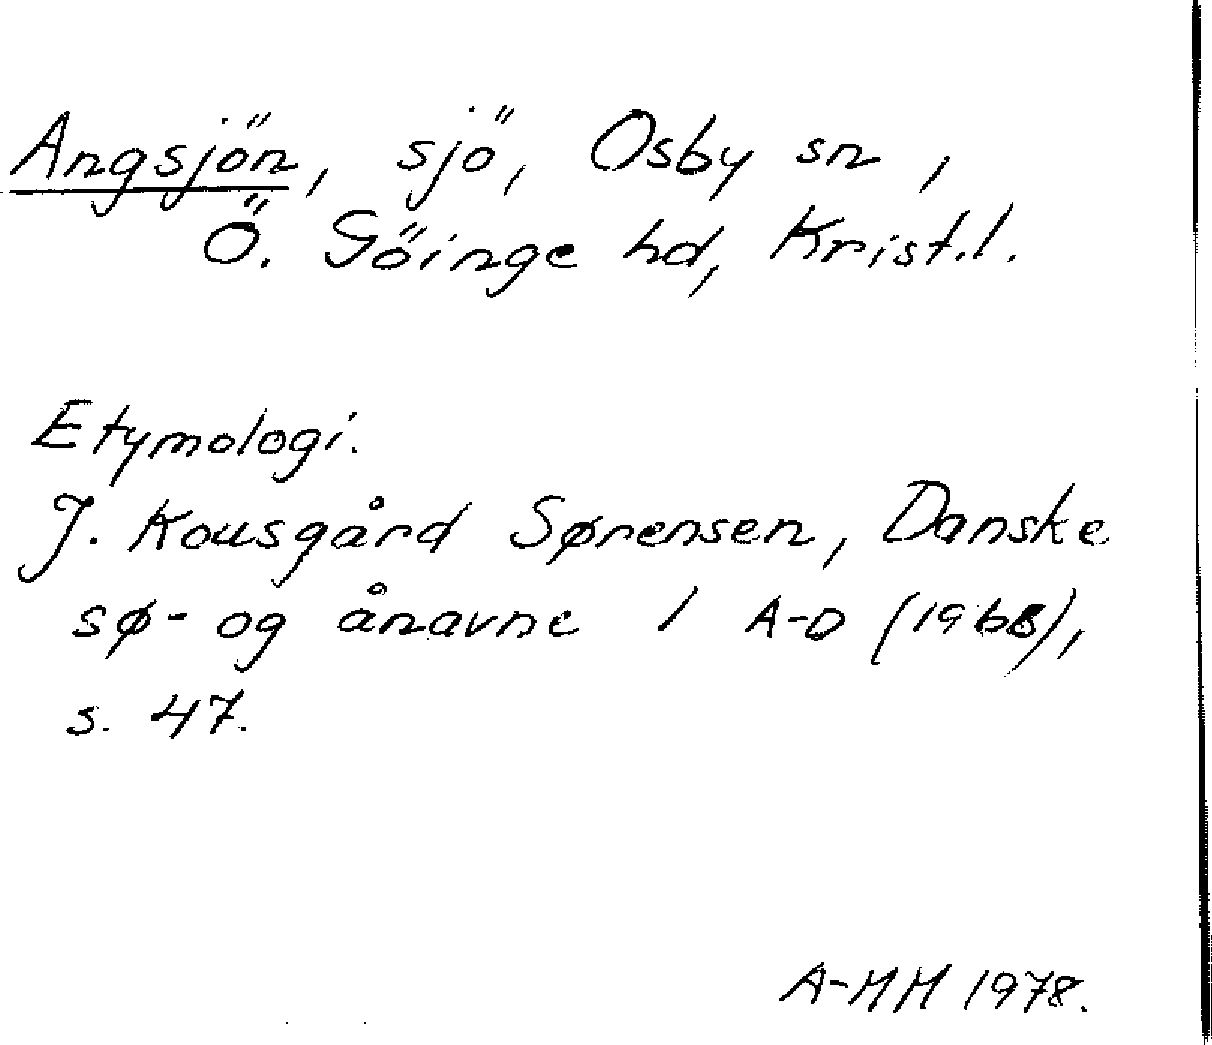 Angsjön, sjö, Osby sn,
Ö. Göinge hd, Krist.l.
Etymologi.
J. Kousgård Sørensen, Danske
sø- og ånavne 1 A-D (1968),
s. 47.
A-MH 1978.